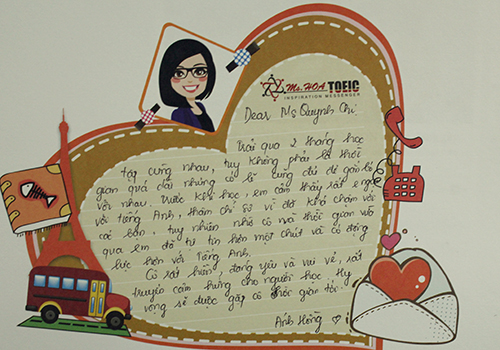 Ms. HOA TOEIC
INSPIRATION MESSENGER
Dear Ms Quỳnh Chi
Trải qua 2 tháng học
tập cùng nhau, tuy không phải là thời
gian quá dài nhưng có lẽ cũng đủ để gắn bó
với nhau. Trước khi học, em cảm thấy rất e ngại
với tiếng Anh, thậm chí sợ vì đã khá chậm với
các bạn, tuy nhiên nhờ cô mà thời gian vừa
qua em đã tự tin hơn một chút và có động
lực hơn với Tiếng Anh.
Cô rất hiền, đáng yêu và vui vẻ, rất
truyền cảm hứng cho người học. Hy
vọng sẽ được gặp cô thời gian tới.
Ánh Hồng